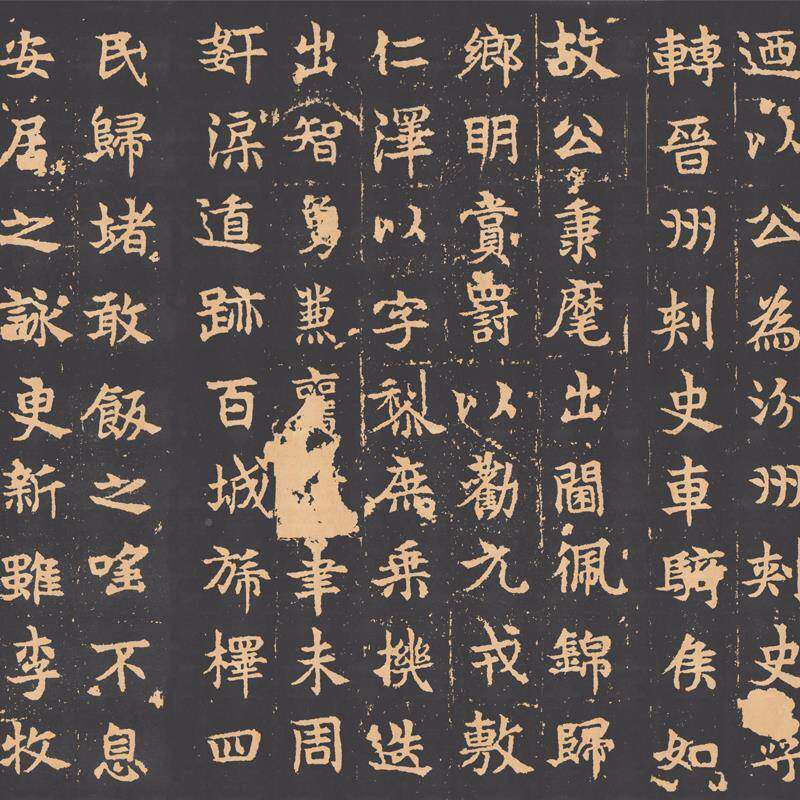 迺以公為汾州刾史
轉晉州刾史車騎侯如
故公秉麾出閫佩錦歸
鄉明賞罸以勸九戎敷
仁澤以字黎庶乗機迭
出智勇兼聿未周
姧深遁跡百城旆檡四
民歸堵敢飯之不息
安居之詠更新雖李牧